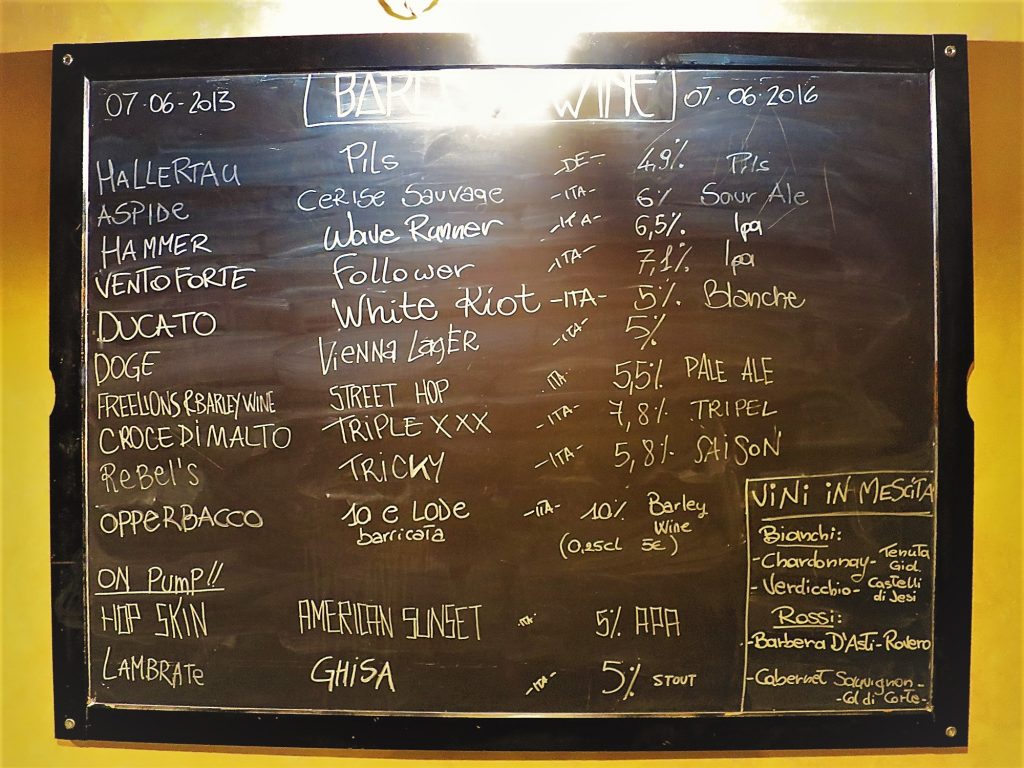 07·06-2013 BAR WINE 07·06·2016
HALLERTAU Pils -DE- 4,9% Pils
ASPIDE CERISE SAUVAGE -ITA- 6% Sour Ale
HAMMER Wave Runner -ITA- 6,5% Ipa
VENTO FORTE Follower -ITA- 7,1% Ipa
DUCATO White Riot -ITA- 5% Blanche
DOGE VIENNA LAGER -ITA- 5%
FREELIONS & BARLEY WINE STREET HOP ITA 5,5% PALE ALE
CROCE DI MALTO TRIPLE XXX -ITA- 7,8% TRIPEL
ReBel's TRICKY -ITA- 5,8% SAISON
OPPERBACCO 10 e LODE -ITA- 10% Barley
barricata Wine
(0,25cl 5€)
ON PUMP!!
HOP SKIN AMERICAN SUNSET -ITA- 5% APA
LAMBRATE GHISA -ITA- 5% STOUT
VINI IN MESCITA
Bianchi:
-Chardonnay- Tenuta
Giol
-Verdicchio- Castelli
di Jesi
Rossi:
-Barbera D'Asti-Rovero
-Cabernet Sauvignon-
-Col di Corte-